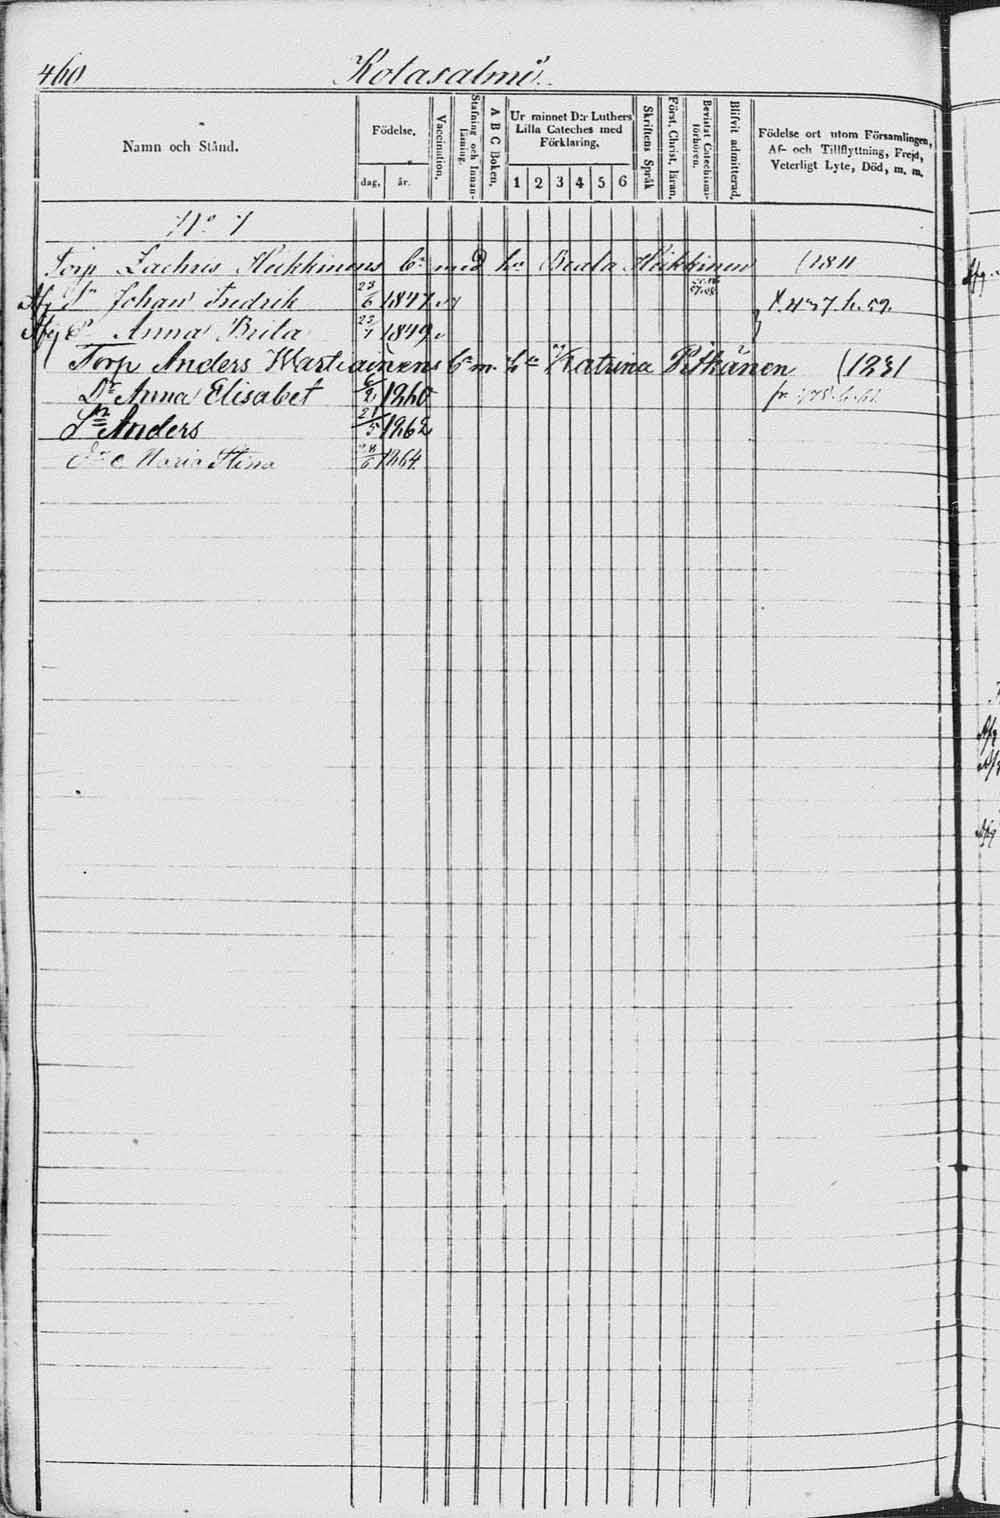 460 Kotasalmi
Namn och Stånd.
Födelse.
dag. år.
Vaccination.
Stafning och Innan-läsning.
A B C Boken.
Ur minnet D:r Luthers Lilla Cateches med Förklaring.
1 2 3 4 5 6
Skriftens Språk
Först. Christ. läran.
Bevistat Catechismi-förhören.
Blifvit admitterad.
Födelse ort utom Församlingen, Af- och Tillflyttning, Frejd, Veterligt Lyte, Död, m. m.
No 1
Torp Zachris Heikkinens Bn med hu Beata Heikkinen (1811
Afg Sn Johan Fredrik 23/6 1847
Afg Dr Anna Brita 1849
Torp Anders Wartiainens Bn m. hu Katrina Pitkänen (1831
Dr Anna Elisabet 1860
Sn Anders 21/5 1862
Dr Maria Stina 1864